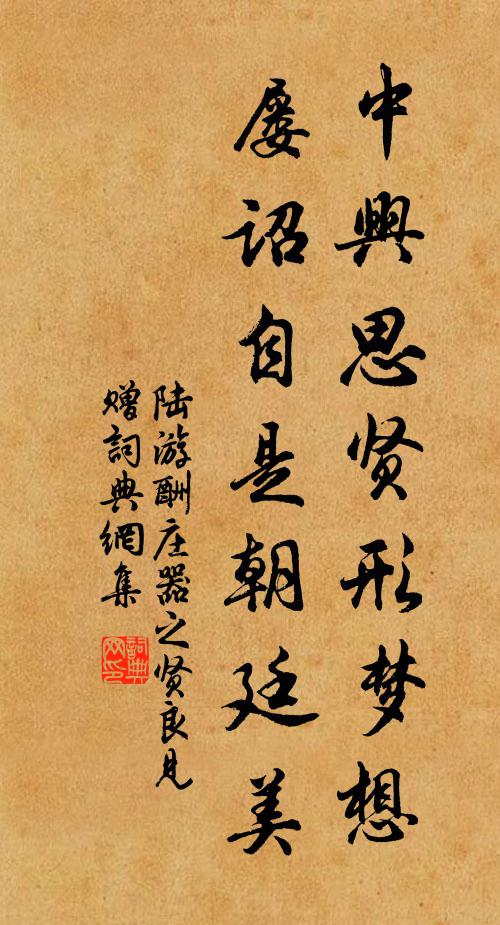 中興思贤形梦想
屡诏自是朝廷美
陆游酬庄器之贤良见
赠詞典網集
詞典网印